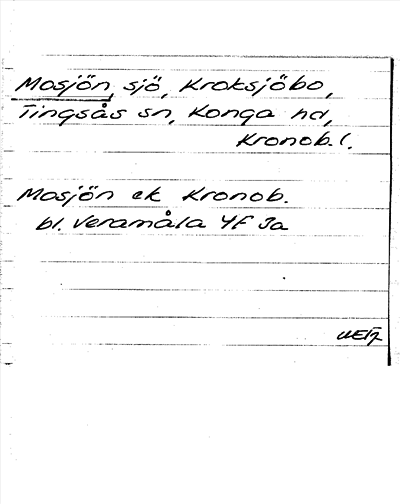 Mosjön, sjö, Kroksjöbo,
Tingsås sn, Konga hd,
Kronob. l.
Mosjön ek Kronob.
bl. Veramåla 4f 3a